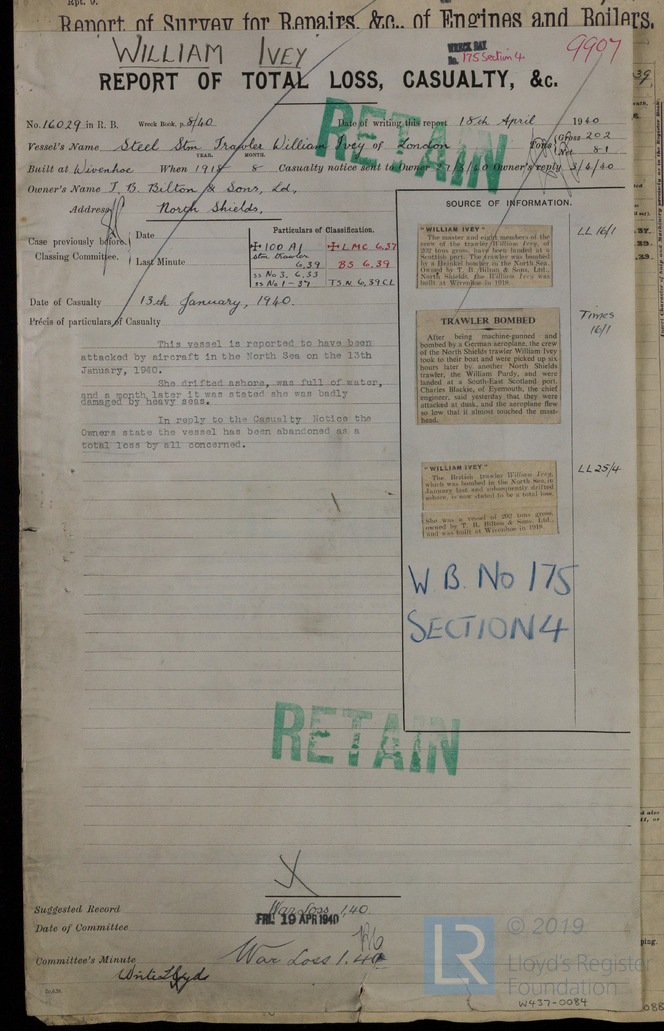 Rpt. 9.
Report of Survey for Repairs, &c., of Engines and Boilers.
WILLIAM IVEY
WRECK BAY
No. 175 Section 4
9907
REPORT OF TOTAL LOSS, CASUALTY, &c.
RETAIN
No. 16029 in R. B. Wreck Book, p. 8/40 Date of writing this report 18th April 1940
Vessel's Name Steel Stm Trawler William Ivey of London Tons Gross 202
Net 81
YEAR. MONTH.
Built at Wivenhoe When 1918 8 Casualty notice sent to Owner 27/3/40 Owner's reply 3/4/40
Owner's Name T. B. Bilton & Sons, Ld,
Address North Shields,
Case previously before
Classing Committee.
Date
Last Minute
Particulars of Classification.
100 A1 LMC 6,37
Stm trawler
6,39 BS 6.39
ss No 3. 6.33
ss No 1-37 TS.N 6,39 CL
Date of Casualty 13th January, 1940.
Précis of particulars of Casualty
This vessel is reported to have been
attacked by aircraft in the North Sea on the 13th
January, 1940.
She drifted ashore, was full of water,
and a month later it was stated she was badly
damaged by heavy seas.
In reply to the Casualty Notice the
Owners state the vessel has been abandoned as a
total loss by all concerned.
SOURCE OF INFORMATION.
"WILLIAM IVEY"
The master and eight members of the
crew of the trawler William Ivey, of
202 tons gross, have been landed at a
Scottish port. The trawler was bombed
by a Heinkel bomber in the North Sea.
Owned by T. B. Bilton & Sons, Ltd.,
North Shields, the William Ivey was
built at Wivenhoe in 1919.
LL 16/1
TRAWLER BOMBED
After being machine-gunned and
bombed by a German aeroplane, the crew
of the North Shields trawler William Ivey
took to their boat and were picked up six
hours later by another North Shields
trawler, the William Purdy, and were
landed at a South-East Scotland port.
Charles Blackie, of Eyemouth, the chief
engineer, said yesterday that they were
attacked at dusk, and the aeroplane flew
so low that it almost touched the mast-
head.
Times
16/1
"WILLIAM IVEY"
The British trawler William Ivey,
which was bombed in the North Sea in
January last and subsequently drifted
ashore, is now stated to be a total loss.
She was a vessel of 202 tons gross,
owned by T. B. Bilton & Sons, Ltd.,
and was built at Wivenhoe in 1919.
LL 25/4
W.B. No 175
SECTION 4
RETAIN
Suggested Record War Loss 1,40
Date of Committee FRI. 19 APR 1940
Committee's Minute War Loss 1.40
Write Lloyds
LR
© 2019
Lloyd's Register
Foundation
W437-0084